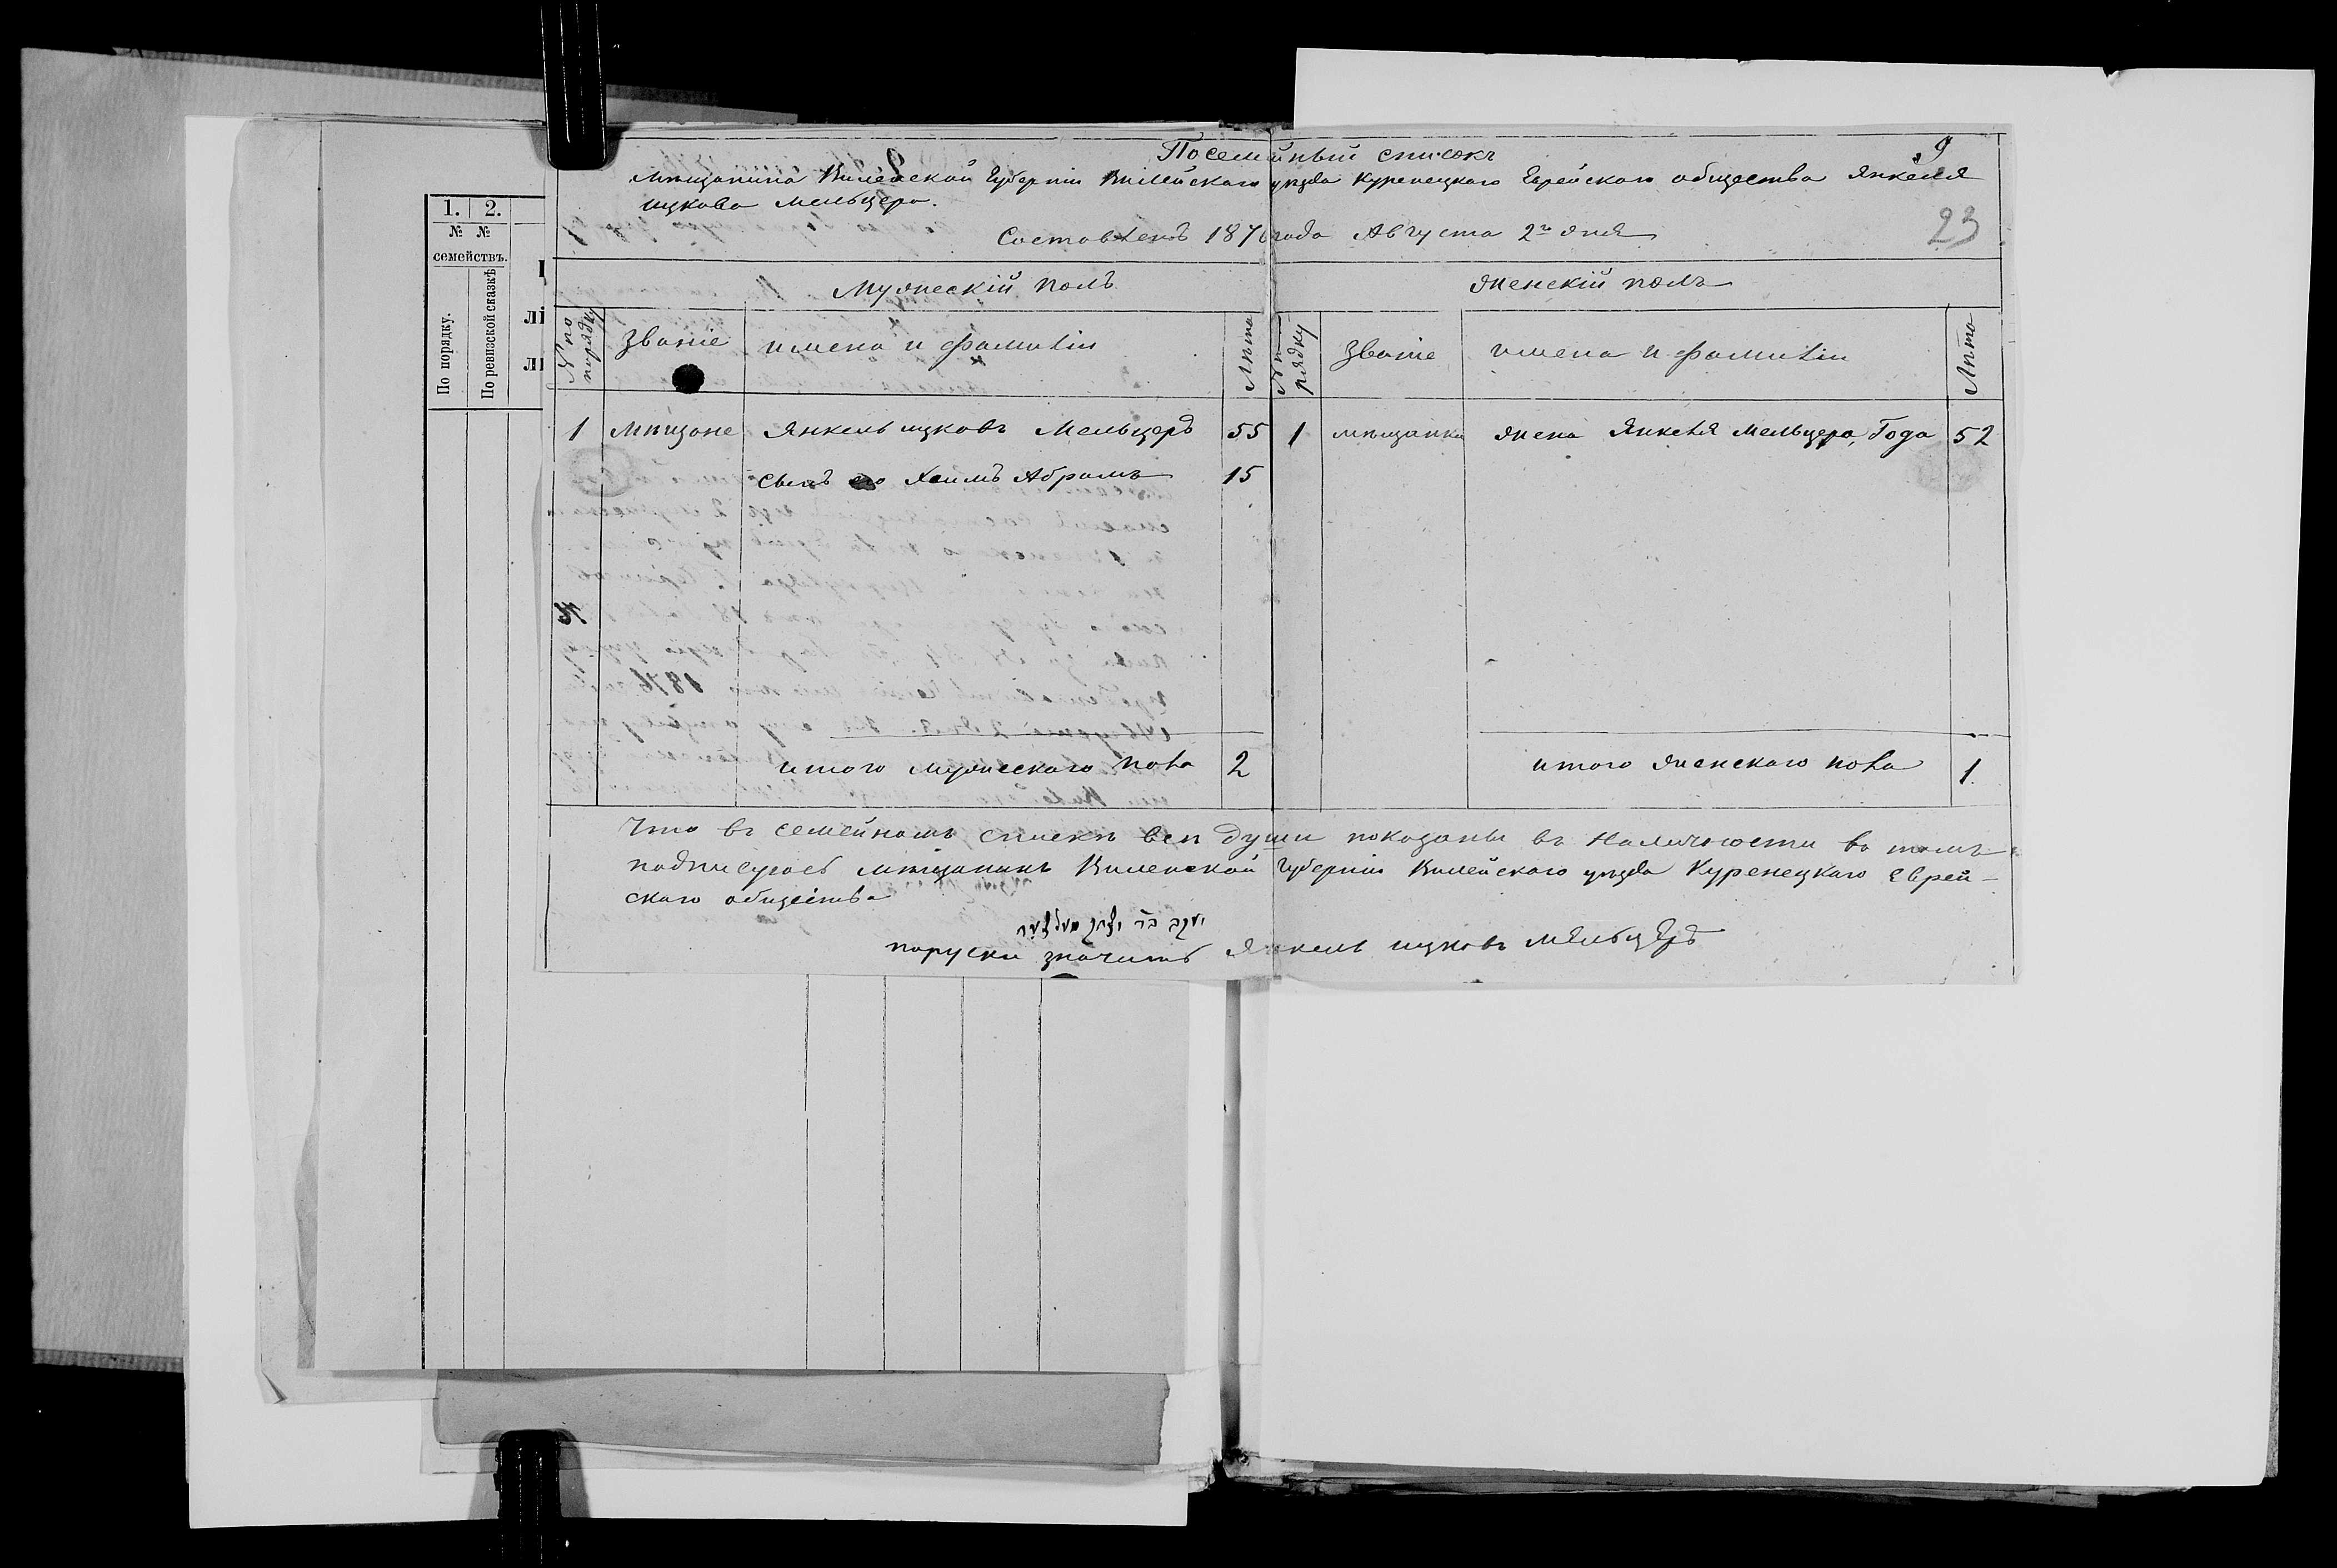 9
Посемейный списокъ
мѣщанина Виленской Губерніи Вилейскаго уѣзда Куренецкаго Еврейскаго общества Янкеля
ицкова Мельцера.
23
Составленъ 1876 года Августа 2го дня
1. 2.
№ №
семействъ.
По порядку.
По ревизской сказкѣ
Мужескій полъ
женскій полъ
№ по порядку
званіе
имена и фамиліи
Лѣта
№ п рядку
званіе
имена и фамиліи
Лѣта
1 мѣщане Янкель ицковъ Мельцеръ 55 1 мѣщанки жена Янкеля мельцера, Года 52
Сынъ его Хаимъ Абрамъ 15
итого мужескаго пола 2
итого женскаго пола 1
Что въ семейномъ спискѣ всѣ души показаны въ наличности въ томъ
подписуюсь мѣщанинъ Виленской Губерніи Вилейскаго уѣзда Куренецкаго Еврей-
скаго общества
יעקב בר יצחק מעלצער
поруски значитъ Янкель ицковъ мельцеръ